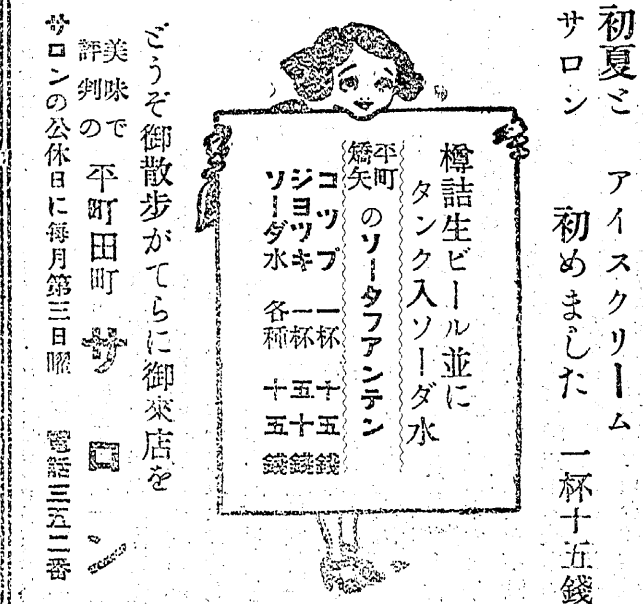 初夏と
サロン
アイスクリーム
初めました
一杯十五錢
樽詰生ビール並に
タンク入ソーダ水
平町
矯矢
のソータフアンテン
コツプ 一杯 十五錢
ジヨツキ 一杯 五十錢
ソーダ水 各種 十五錢
どうぞ御散歩がてらに御來店を
美味で
評判の
平町田町
サロン
サロンの公休日に毎月第三日曜
電話三五二番